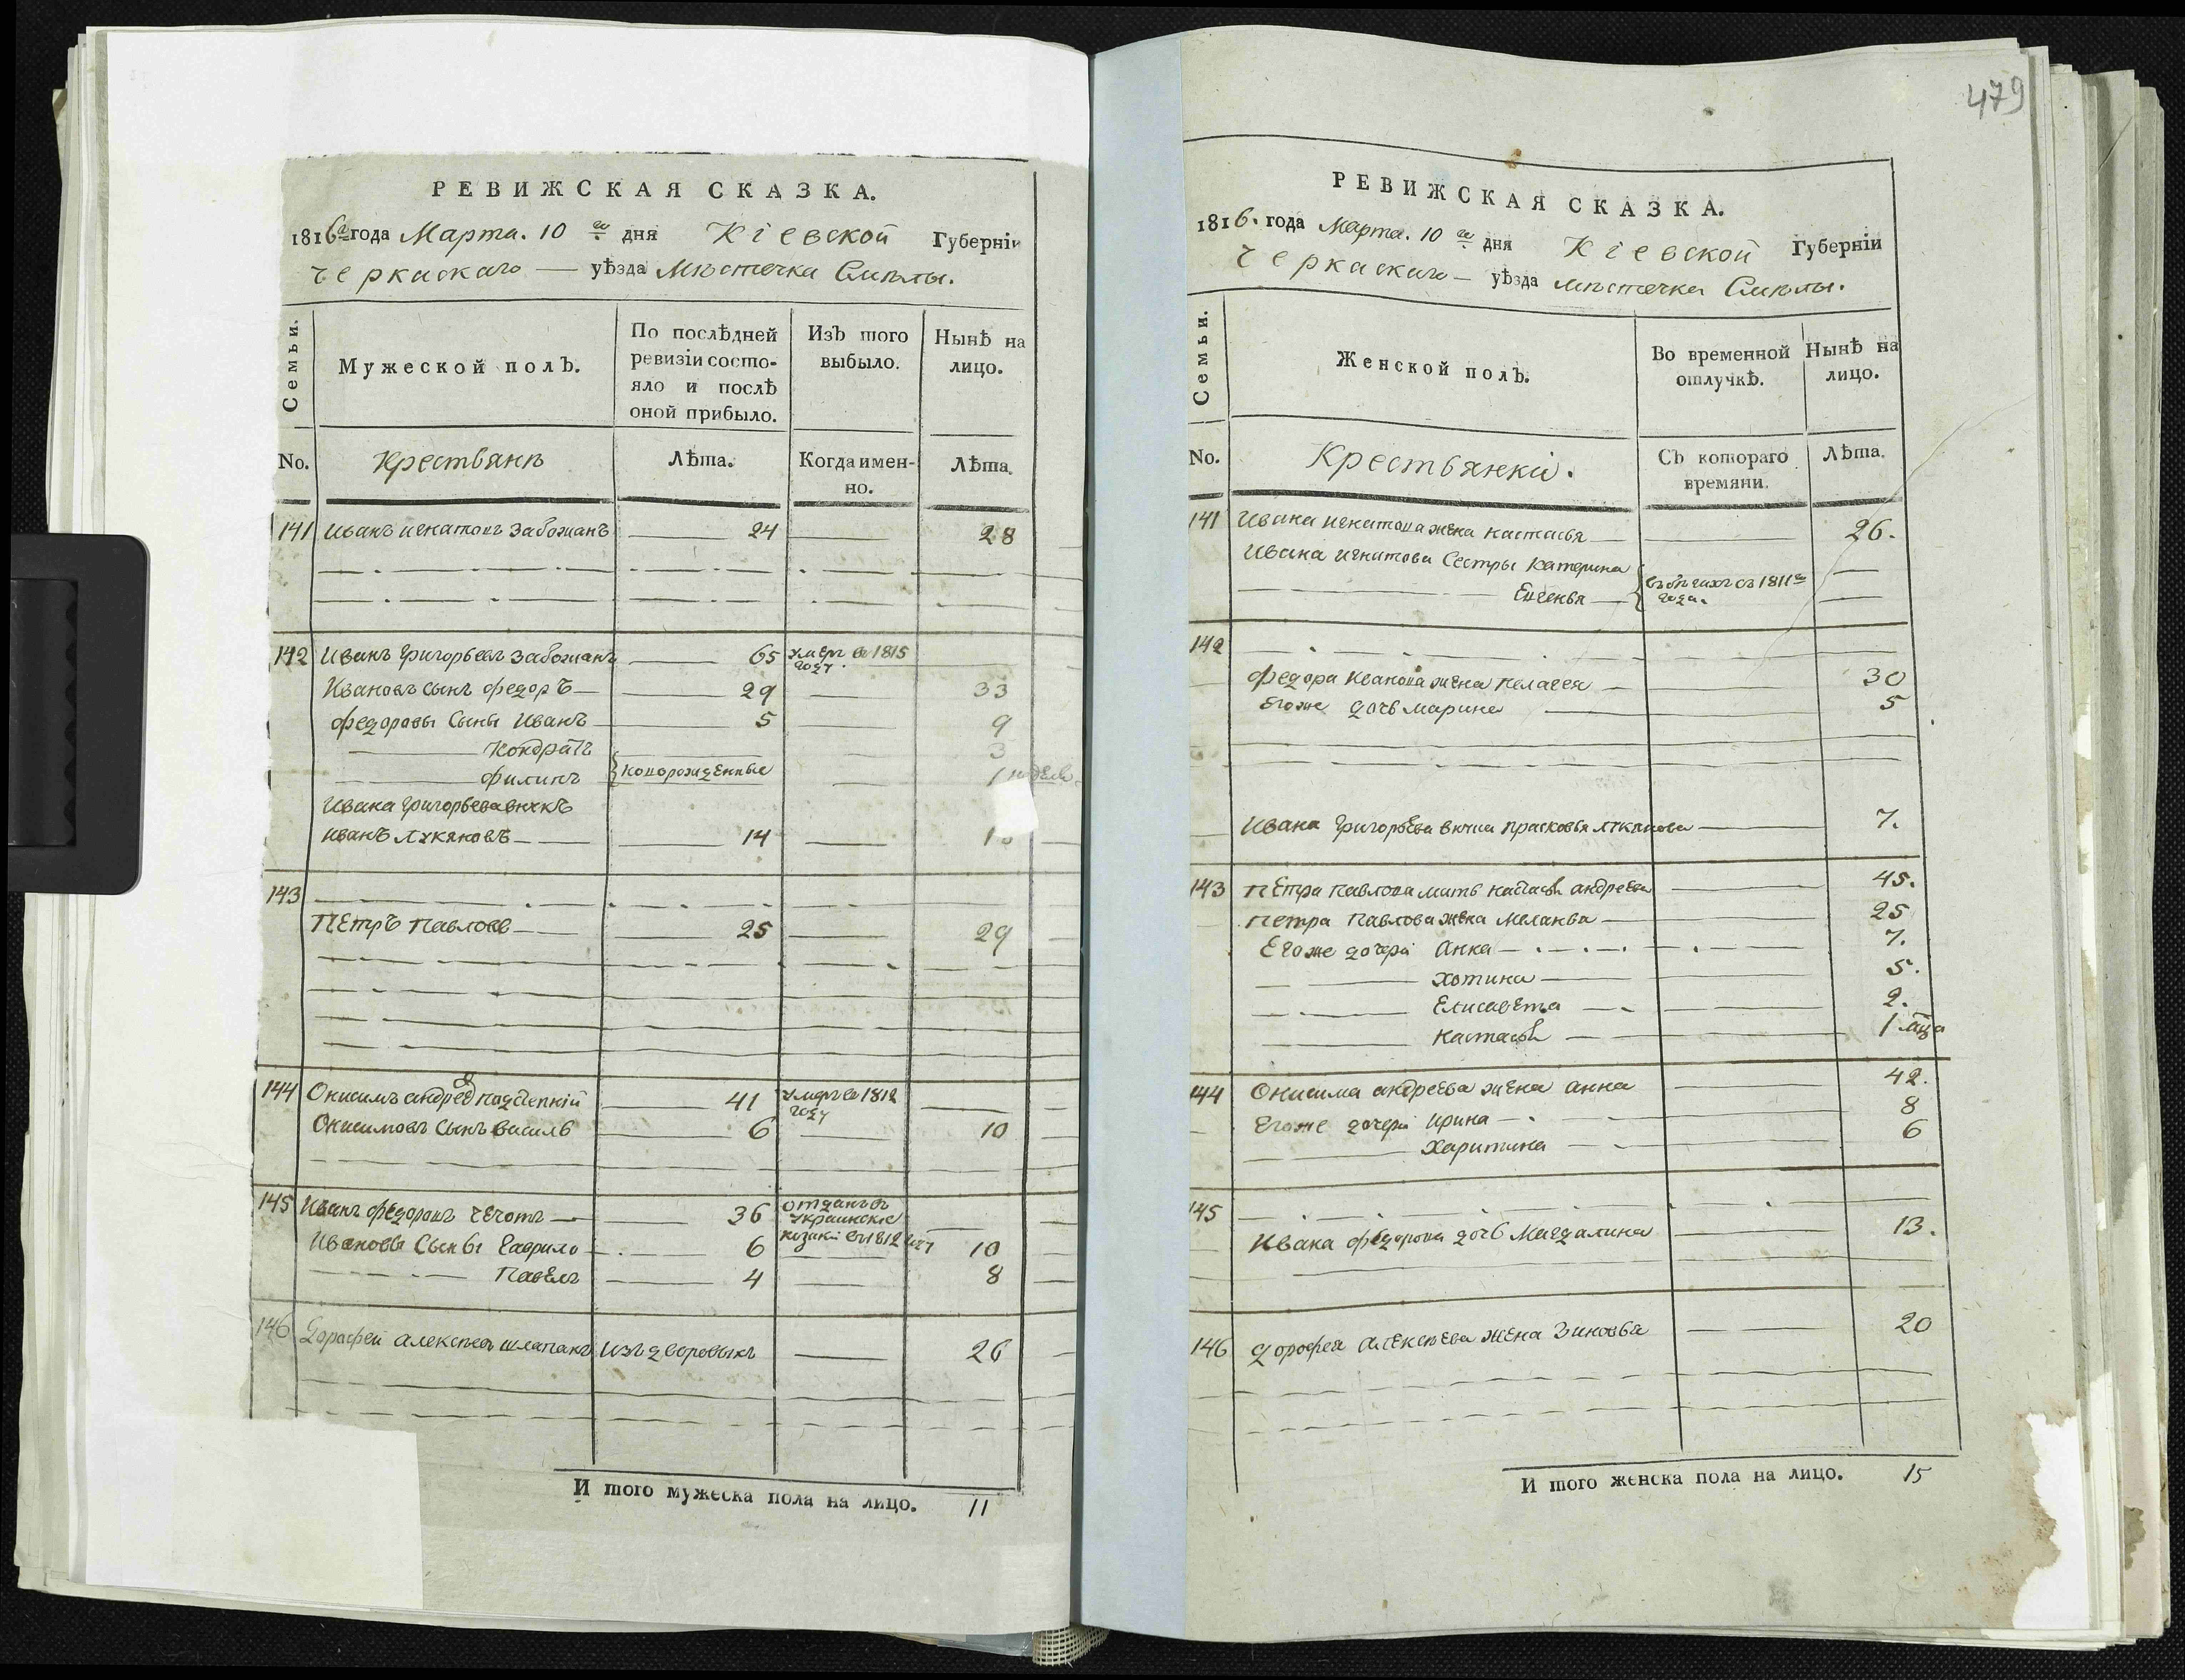 РЕВИЖСКАЯ СКАЗКА.
1816го года Марта. 10 го дня Кіевской Губерніи
Черкаскаго — уѣзда Мѣстечка Смѣлы.
Семьи.
Мужеской полЪ.
По послѣдней ревизіи состояло и послѣ оной прибыло.
ИзЪ того выбыло.
НынѢ на лицо.
No.
Крестьянъ
Лѣта.
Когда имен-но.
Лѣта.
141 Иванъ Игнатовъ Забожанъ 24 28
142 Иванъ Григорьевъ Забожанъ 65 умеръ въ 1815 году.
Ивановъ сынъ Федоръ 29 33
Федоровы сыны Иванъ 5 9
Кондратъ 3
Филипъ новорожденные 1 недели
Ивана Григорьева внукъ
Иванъ Лукяновъ 14
143
Петръ Павловъ 25 29
144 Онисимъ Андреевъ 41 умеръ въ 1812 году
Онисимовъ сынъ Василь 6 10
145 Иванъ Федоровъ Чечотъ 36 отданъ въ украинские козаки въ 1812 году
Ивановы сыны Гаврило 6 10
Павелъ 4 8
146 Дорофей Алексѣевъ Шлапакъ изъ дворовыхъ 26
И того мужеска пола на лицо. 11
479
РЕВИЖСКАЯ СКАЗКА.
1816. года Марта. 10 го дня Кіевской Губерніи
Черкаскаго — уѣзда мѣстечка Смѣлы.
Семьи.
Женской полЪ.
Во временной отлучкѢ.
НынѢ на лицо.
No.
Крестьянки.
СЪ котораго времяни.
Лѣта.
141 Ивана Игнатова жена Настасья 26.
Ивана Игнатова сестры Катерина
Евгенья въ бѣгахъ съ 1811го года.
142
Федора Иванова жена Пелагея 30
Егоже дочь Марина 5
Ивана Григорьева внука Прасковья Лукянова 7.
143 Петра Павлова мать Настасья Андреева 45.
Петра Павлова жена Меланья 25
Егоже дочери Анна 7.
Хотина 5.
Елисавета 2.
Настасья 1 мца
144 Онисима Андреева жена Анна 42.
Егоже дочери Ирина 8
Харитина 6
145
Ивана Федорова дочь Магдалина 13.
146 Дорофея Алексѣева жена Зиновья 20
И того женска пола на лицо. 15